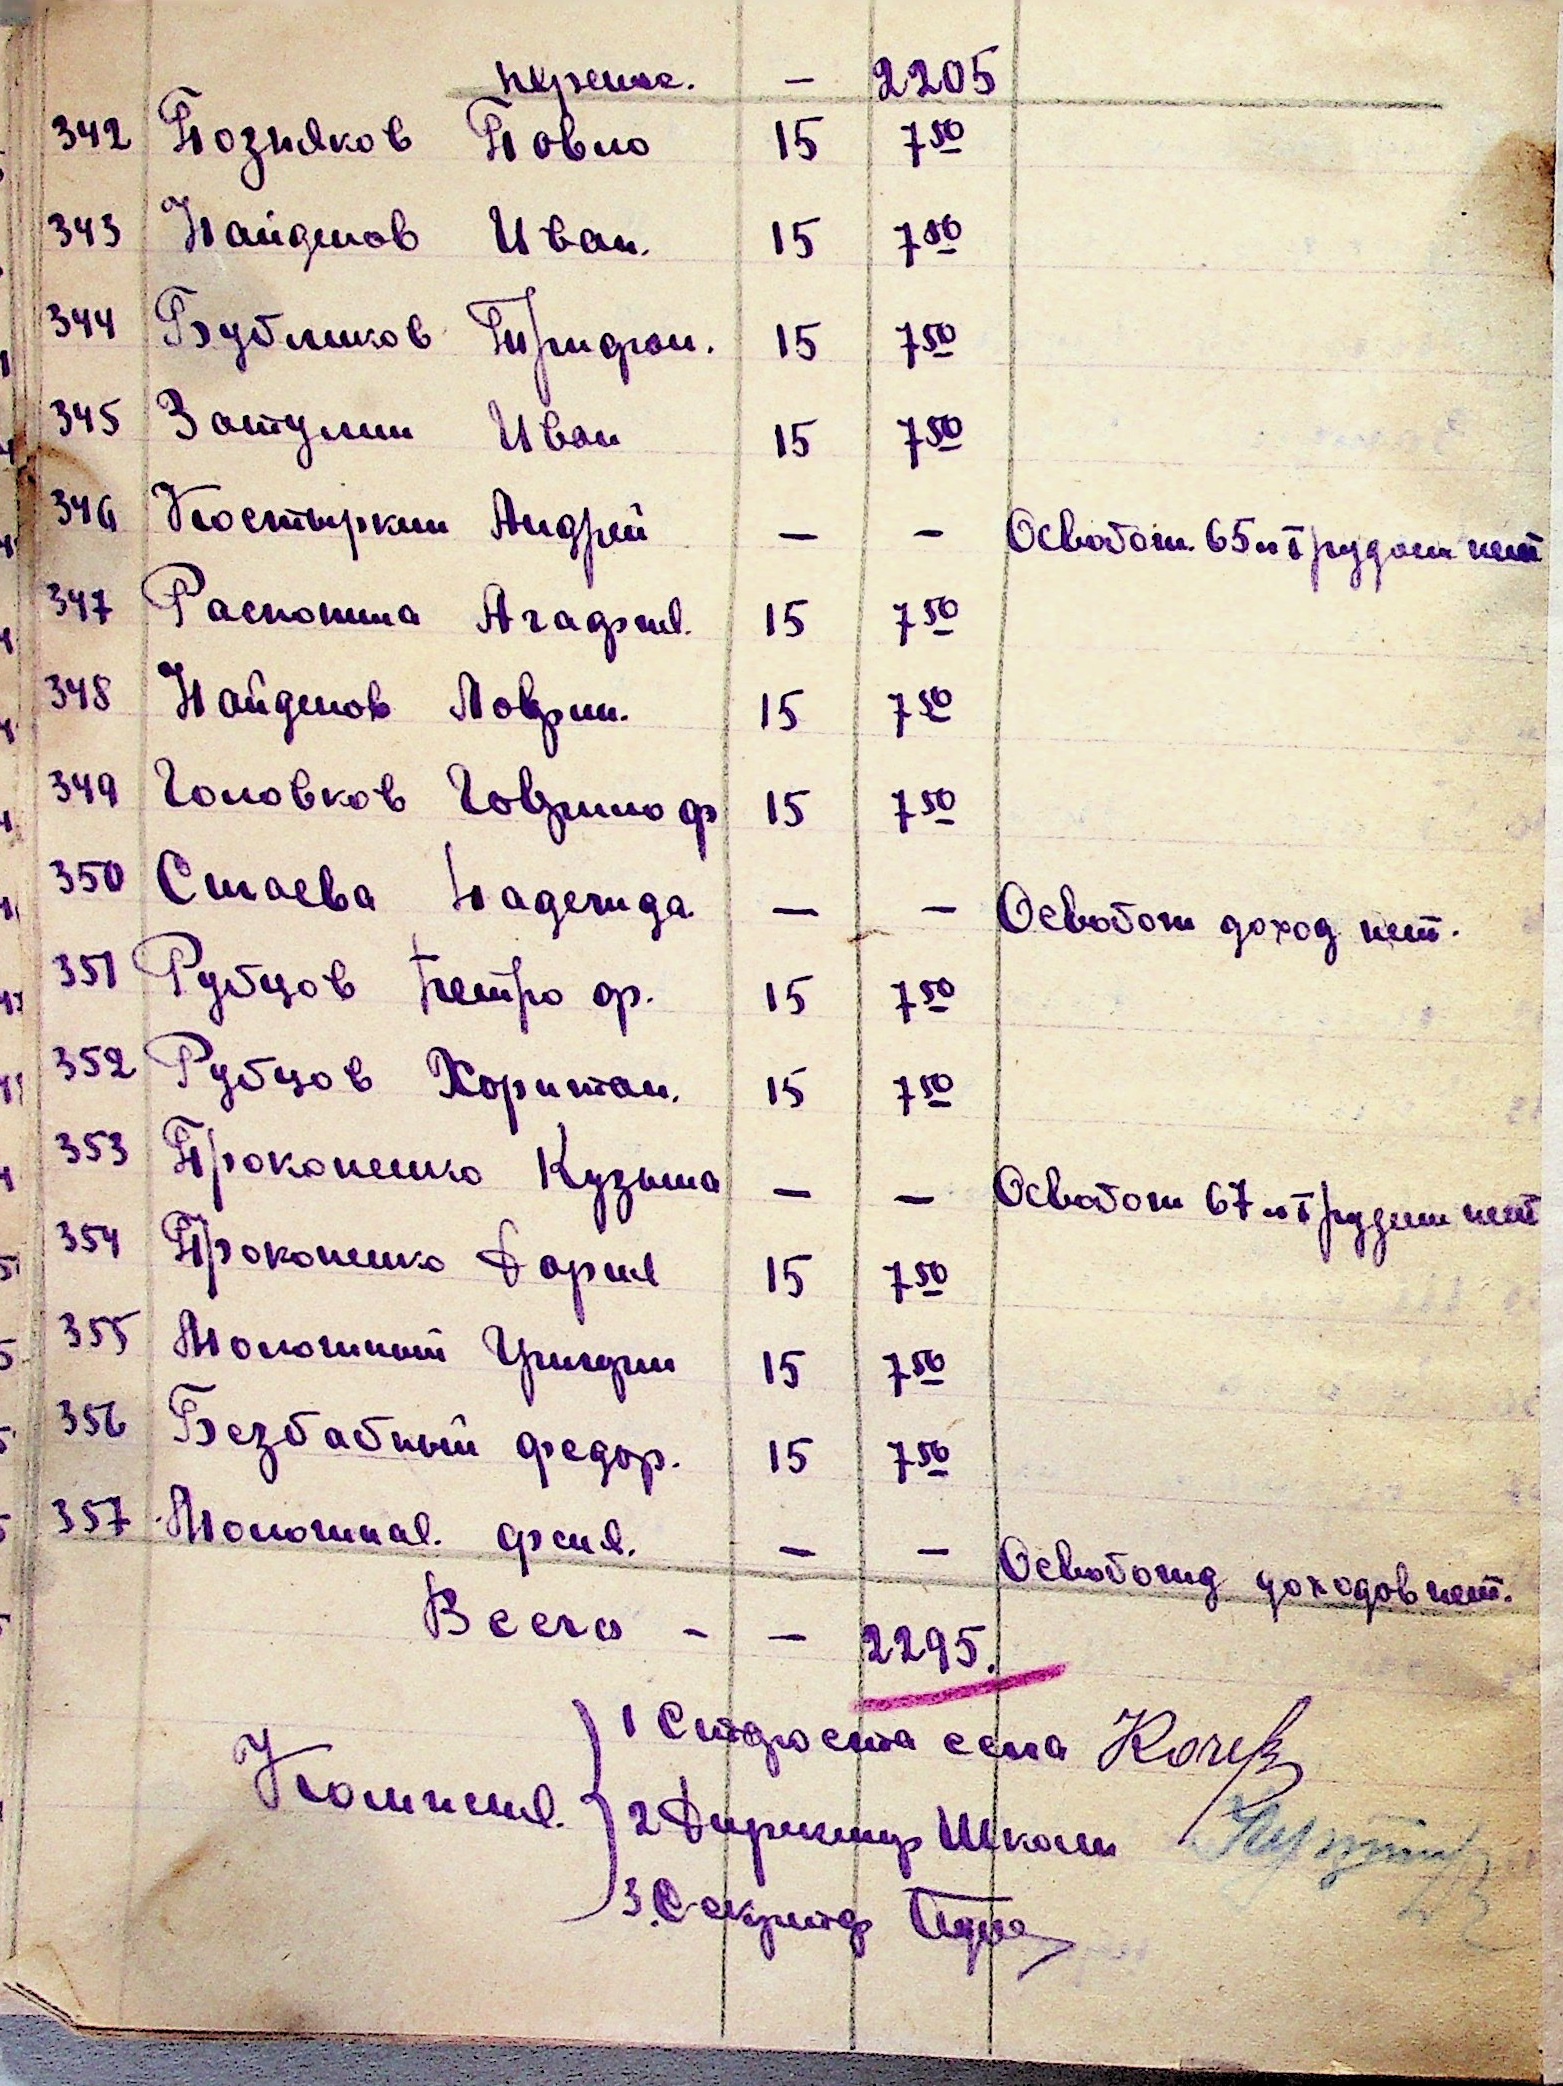 перенос. - 2205
342 Позняков Павло 15 7 50
343 Найденов Иван. 15 7 50
344 Бубликов Трифон. 15 7 50
345 Затулин Иван 15 7 50
346 Костыркин Андрей - - Освобож. 65 л трудосп нет
347 Распопина Агафия. 15 7 50
348 Найденов Лаврин. 15 7 50
349 Головков Гаврило ф 15 7 50
350 Сmаева Надежда - - Освобож доход нет.
351 Рубцов Петро ф. 15 7 50
352 Рубцов Харитон. 15 7 50
353 Прокопенко Кузьма - - Освобож 67 л трудосп нет
354 Прокопенко Дария 15 7 50
355 Молошный 15 7 50
356 Безбабный федор. 15 7 50
357 - - Освобожд доходов нет.
Всего - - 2295.
Комисия. 1 Староста села
2 Директор Школи
3. Секретар